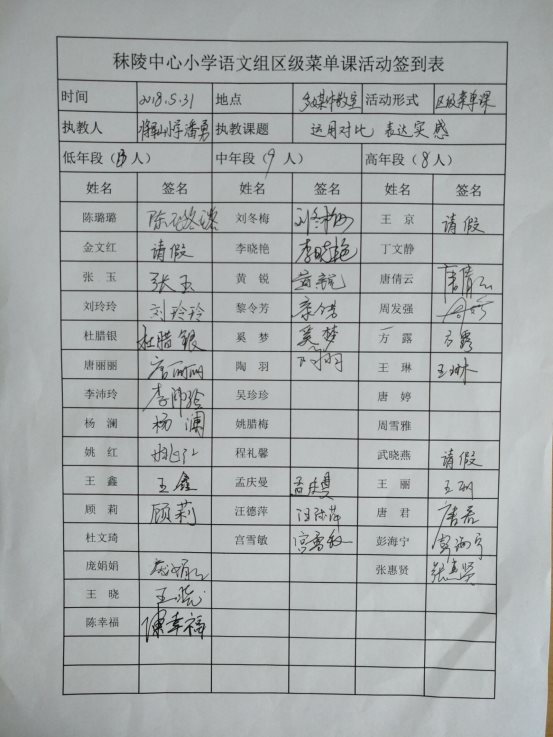 秣陵中心小学语文组区级菜单课活动签到表
时间 2018.5.31 地点 多媒体教室 活动形式 区级菜单课
执教人 小学潘勇 执教课题 运用对比 表达实感
低年段（13人） 中年段（9人） 高年段（8人）
姓名 签名 姓名 签名 姓名 签名
陈璐璐 陈璐璐 刘冬梅 刘冬梅 王京 请假
金文红 请假 李晓艳 李晓艳 丁文静
张玉 张玉 黄锐 黄锐 唐倩云 唐倩云
刘玲玲 刘玲玲 黎令芳 周发强
杜腊银 杜腊银 奚梦 奚梦 方露 方露
唐丽丽 唐丽丽 陶羽 陶羽 王琳 王琳
李沛玲 李沛玲 吴珍珍 唐婷
杨澜 杨澜 姚腊梅 周雪雅
姚红 姚红 程礼馨 武晓燕 请假
王鑫 王鑫 孟庆曼 孟庆曼 王丽 王丽
顾莉 顾莉 汪德萍 汪德萍 唐君 唐君
杜文琦 宫雪敏 宫雪敏 彭海宁 彭海宁
庞娟娟 庞娟娟 张惠贤 张惠贤
王晓 王晓
陈幸福 陈幸福